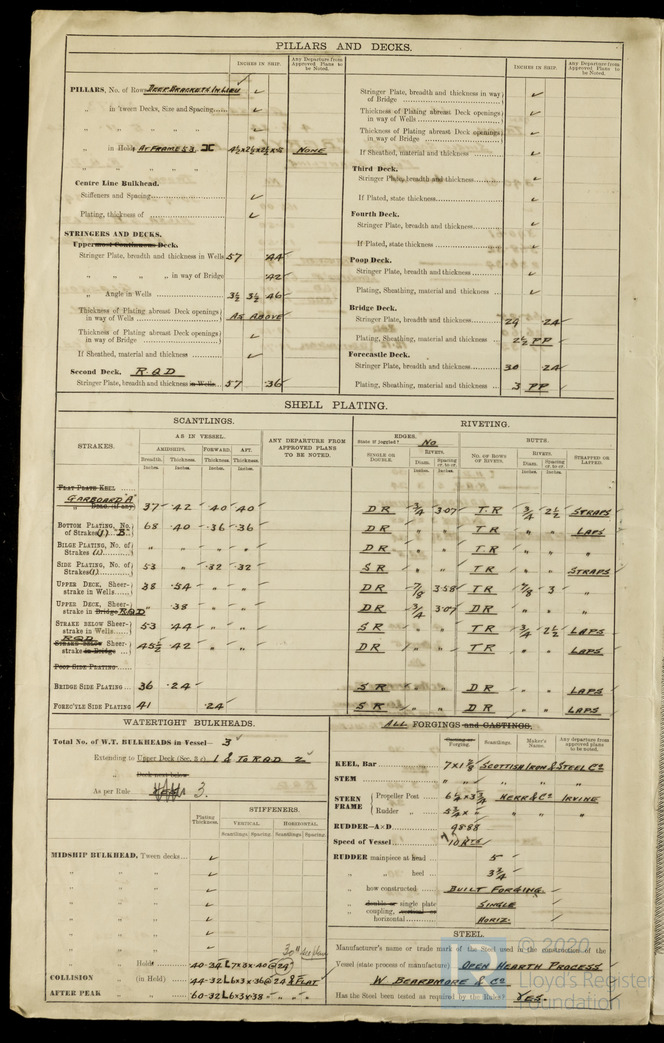 PILLARS AND DECKS.
INCHES IN SHIP. Any Departure from Approved Plans to be Noted.
PILLARS, No. of Rows DEEP BRACKETS IN LIEU
„ in 'tween Decks, Size and Spacing
„ „ „ „ „
„ in Holds AT FRAME 53 NONE
„ „ „ „
Centre Line Bulkhead.
Stiffeners and Spacing
Plating, thickness of
STRINGERS AND DECKS.
Upper most Continuous Deck.
Stringer Plate, breadth and thickness in Wells 57 .44
„ „ „ „ in way of Bridge .42
„ Angle in Wells 3½ 3½ .46
Thickness of Plating abreast Deck openings in way of Wells AS ABOVE
Thickness of Plating abreast Deck openings in way of Bridge
If Sheathed, material and thickness
Second Deck. R.Q.D
Stringer Plate, breadth and thickness in Wells 57 .36
INCHES IN SHIP. Any Departure from Approved Plans to be Noted.
Stringer Plate, breadth and thickness in way of Bridge
Thickness of Plating abreast Deck openings in way of Wells
Thickness of Plating abreast Deck openings in way of Bridge
If Sheathed, material and thickness
Third Deck.
Stringer Plate, breadth and thickness
If Plated, state thickness
Fourth Deck.
Stringer Plate, breadth and thickness
If Plated, state thickness
Poop Deck.
Stringer Plate, breadth and thickness
Plating, Sheathing, material and thickness
Bridge Deck.
Stringer Plate, breadth and thickness 29 .24
Plating, Sheathing, material and thickness 2½ PP
Forecastle Deck.
Stringer Plate, breadth and thickness 30 .24
Plating, Sheathing, material and thickness 3 PP
SHELL PLATING.
SCANTLINGS. RIVETING.
STRAKES. AS IN VESSEL. ANY DEPARTURE FROM APPROVED PLANS TO BE NOTED. EDGES. State if joggled? NO BUTTS.
AMIDSHIPS. FORWARD. AFT. SINGLE OR DOUBLE. RIVETS. NO. OF ROWS OF RIVETS. RIVETS. STRAPPED OR LAPPED.
Breadth. Thickness. Thickness. Thickness. Diam. Spacing cr. to cr. Diam. Spacing cr. to cr.
Inches. Inches. Inches. Inches. Inches. Inches. Inches. Inches.
FLAT PLATE KEEL
GARBOARD "A" 37 .42 .40 .40 DR ¾ 3.07 TR ¾ 2½ STRAPS
BOTTOM PLATING, No. of Strakes (1) "B" 68 .40 .36 .36 DR „ „ TR „ „ LAPS
BILGE PLATING, No. of Strakes (1) „ „ „ „ DR „ „ TR „ „ „
SIDE PLATING, No. of Strakes (1) 53 „ .32 .32 SR „ „ TR „ „ STRAPS
UPPER DECK, Sheerstrake in Wells 38 .54 „ „ DR 7/8 3.58 TR 7/8 3 „
UPPER DECK, Sheerstrake in Bridge RQD „ .38 „ „ DR ¾ 3.07 DR „ „ „
STRAKE BELOW Sheerstrake in Wells 53 .44 „ „ SR „ „ TR ¾ 2½ LAPS
RQD STRAKE BELOW Sheerstrake in Bridge 45½ .42 „ „ DR „ „ TR „ „ LAPS
POOP SIDE PLATING
BRIDGE SIDE PLATING 36 .24 SR „ „ DR „ „ LAPS
FOREC'TLE SIDE PLATING 41 .24 SR „ „ DR „ „ LAPS
WATERTIGHT BULKHEADS.
Total No. of W.T. BULKHEADS in Vessel— 3
Extending to Upper Deck (Sec. 3 c) 1 & TO R.Q.D 2
„ Deck next below
As per Rule 3.
Plating Thickness. STIFFENERS.
VERTICAL. HORIZONTAL.
Scantlings. Spacing. Scantlings. Spacing.
MIDSHIP BULKHEAD, Tween decks
„ „ „
„ „ „
„ „ „
„ „ „
„ „ „
„ „ Holds .40-.34 L 7x3x.40 @ 24
COLLISION „ (in Hold) .44-.32 L 6x3x.36 @ 24 & FLAT
AFTER PEAK „ „ .60-.32 L 6x3x.38 „ „
ALL FORGINGS and CASTINGS.
Casting or Forging. Scantlings. Maker's Name. Any departure from approved plans to be noted.
KEEL, Bar 7 x 1⅞ SCOTTISH IRON & STEEL Co
STEM „ „ „ „
STERN FRAME { Propeller Post 6¼ x 3¾ KERR & Co IRVINE
Rudder „ „ „
RUDDER—A×D 98.88
Speed of Vessel 10 KTS
RUDDER mainpiece at head 5
„ „ heel 3¾
„ how constructed BUILT FORGING.
„ double or single plate SINGLE
„ coupling, vertical or horizontal HORIZ.
STEEL.
Manufacturer's name or trade mark of the Steel used in the construction of the
Vessel (state process of manufacture) OPEN HEARTH PROCESS
W BEARDMORE & Co
Has the Steel been tested as required by the Rules? YES.
© 2020
Lloyd's Register
Foundation